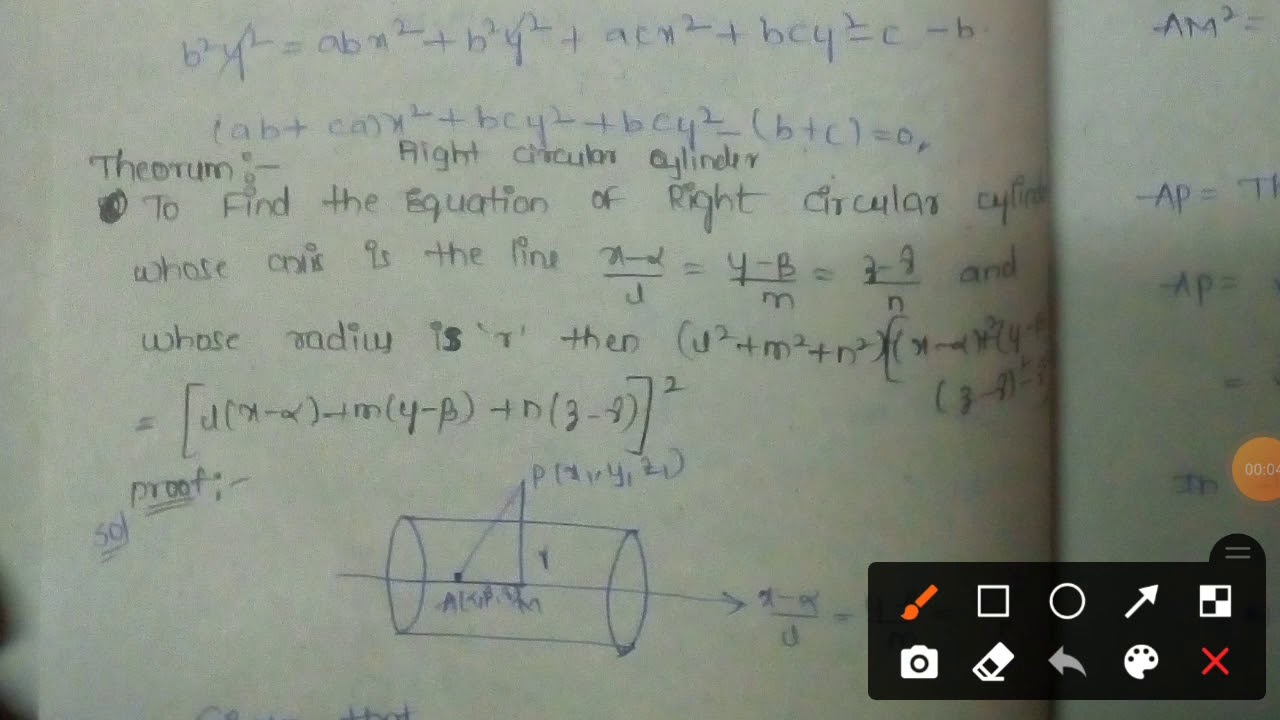 b²y² = abx² + b²y² + acx² + bcy² = c - b
(ab + ca)x² + bcy² + bcy² - (b+c) = 0,
Theorum :- Right circular cylinder
To Find the Equation of Right circular cylind
whose axis is the line x-α/l = y-β/m = z-γ/n and
whose radius is 'r' then (l²+m²+n²)[(x-α)²+(y-β
(z-γ)²-r²
= [l(x-α)+m(y-β)+n(z-γ)]²
proof :-
sol
P(x₁, y₁ z₁)
r
A(α,β,γ) m
x-α/l =
Given that
AM² =
AP = Th
AP =
=
In
00:04